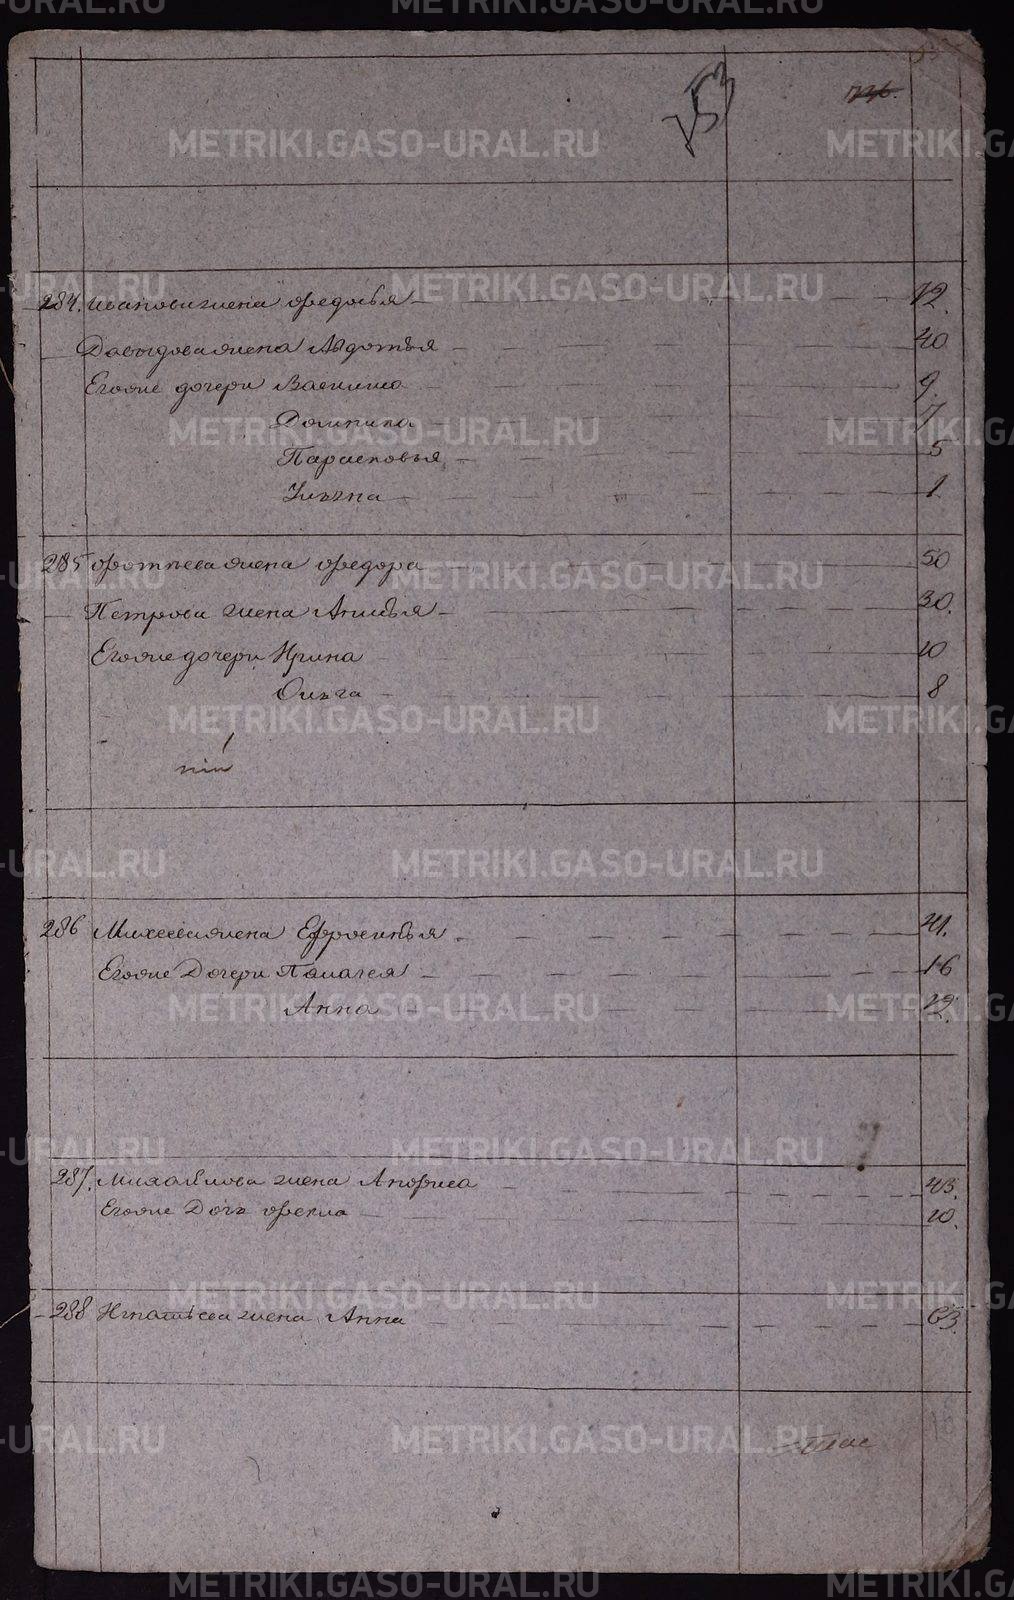 METRIKI.GASO-URAL.RU
153
284. Иванова жена Федосья 72.
Давыдова жена Авдотья 40
Егоже дочери Василиса 9.
Домника 7
Парасковья 5
Ульяна 1
285 Фотиева жена Федора 50
Петрова жена Анисья 30.
Егоже дочери Ирина 10
Ольга 8
286 Михеева жена Ефросинья 41.
Егоже Дочери Палагея 16
Анна 12.
287. Михайлова жена Анфиса 43.
Егоже Дочь Фекла 10.
288 Игнатьева жена Анна 63.